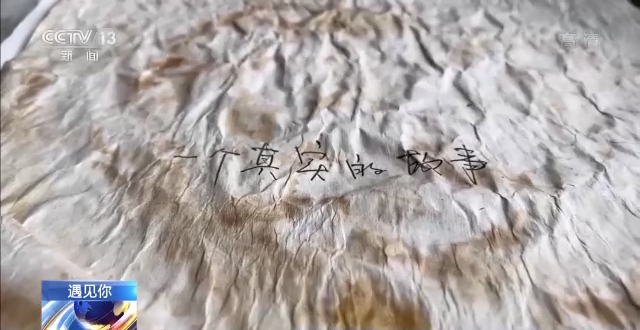 CCTV 13
新闻
高清
一个真实的故事
遇见你